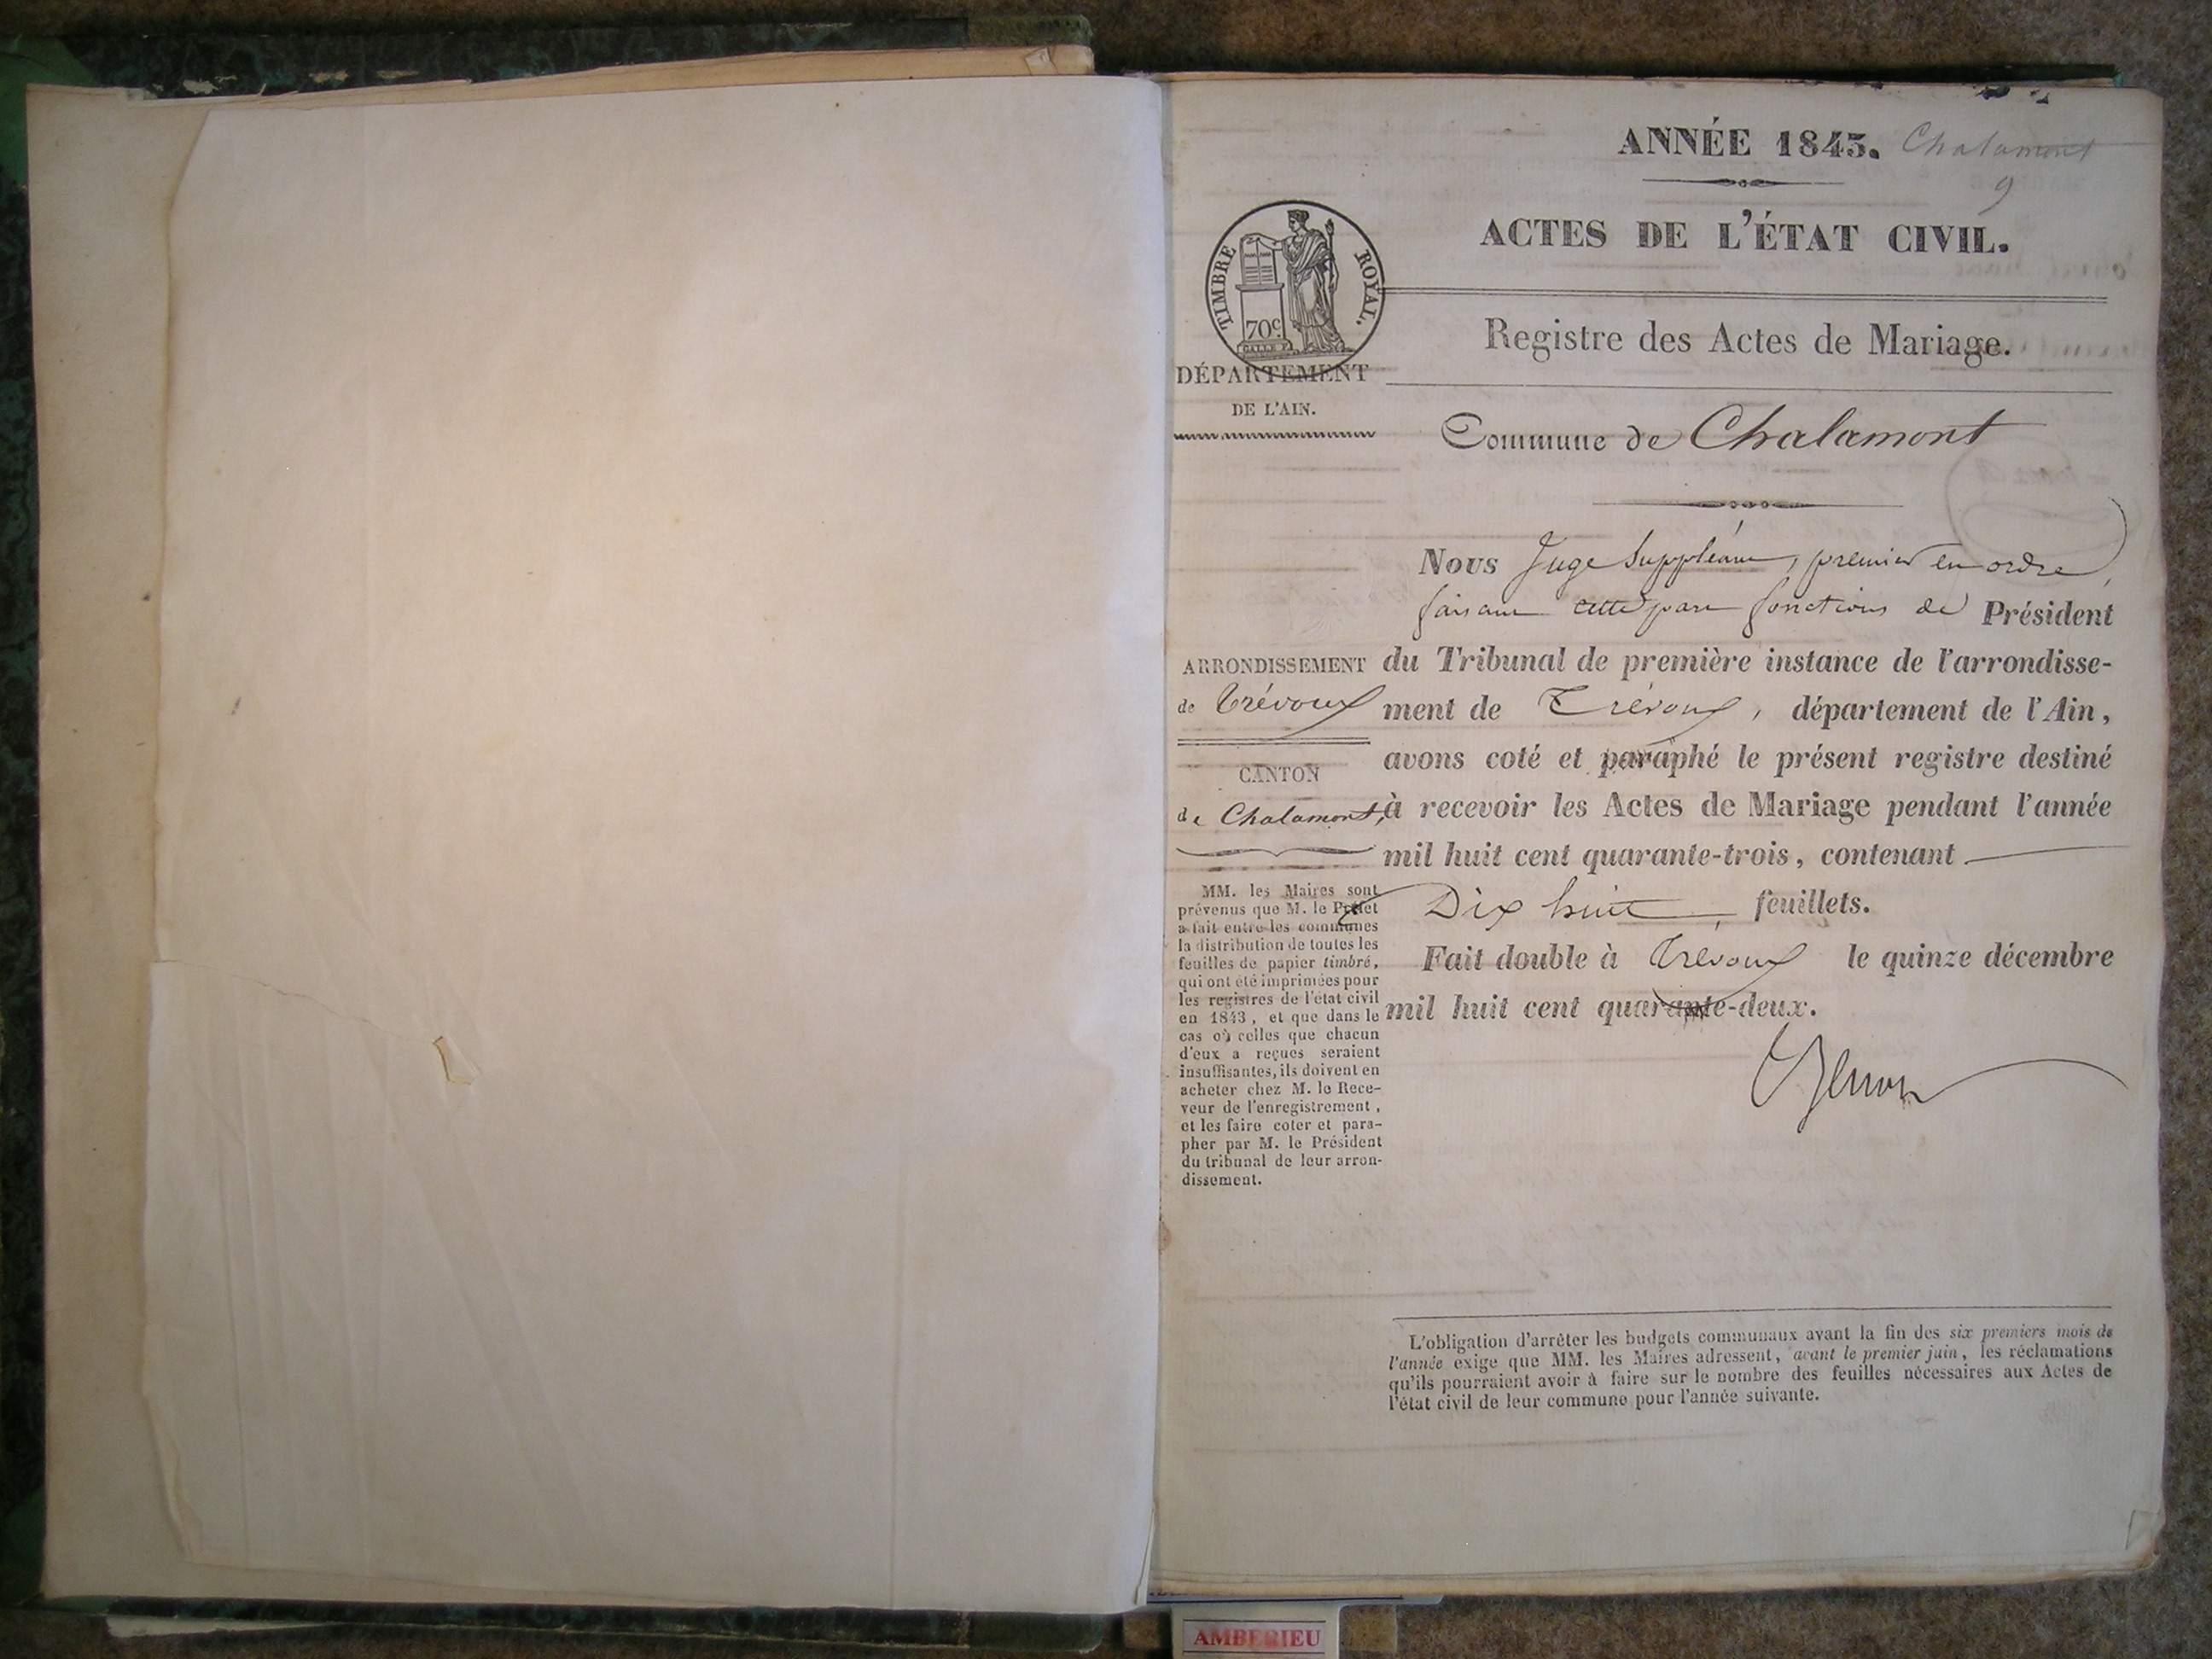 ANNÉE 1843. Chalamont
9
ACTES DE L'ÉTAT CIVIL.
TIMBRE ROYAL.
70c
Registre des Actes de Mariage.
DÉPARTEMENT
DE L'AIN.
Commune de Chalamont
Nous Juge Suppléant, premier en ordre,
faisant cette part fonctions de Président
du Tribunal de première instance de l'arrondisse-
ment de Trévoux, département de l'Ain,
avons coté et paraphé le présent registre destiné
à recevoir les Actes de Mariage pendant l'année
mil huit cent quarante-trois, contenant
Dix huit feuillets.
Fait double à Trévoux le quinze décembre
mil huit cent quarante-deux.
ARRONDISSEMENT
de Trévoux
CANTON
de Chalamont,
MM. les Maires sont
prévenus que M. le Préfet
a fait entre les communes
la distribution de toutes les
feuilles de papier timbré,
qui ont été imprimées pour
les registres de l'état civil
en 1843, et que dans le
cas où celles que chacun
d'eux a reçues seraient
insuffisantes, ils doivent en
acheter chez M. le Rece-
veur de l'enregistrement,
et les faire coter et para-
pher par M. le Président
du tribunal de leur arron-
dissement.
L'obligation d'arrêter les budgets communaux avant la fin des six premiers mois de
l'année exige que MM. les Maires adressent, avant le premier juin, les réclamations
qu'ils pourraient avoir à faire sur le nombre des feuilles nécessaires aux Actes de
l'état civil de leur commune pour l'année suivante.
AMBERIEU